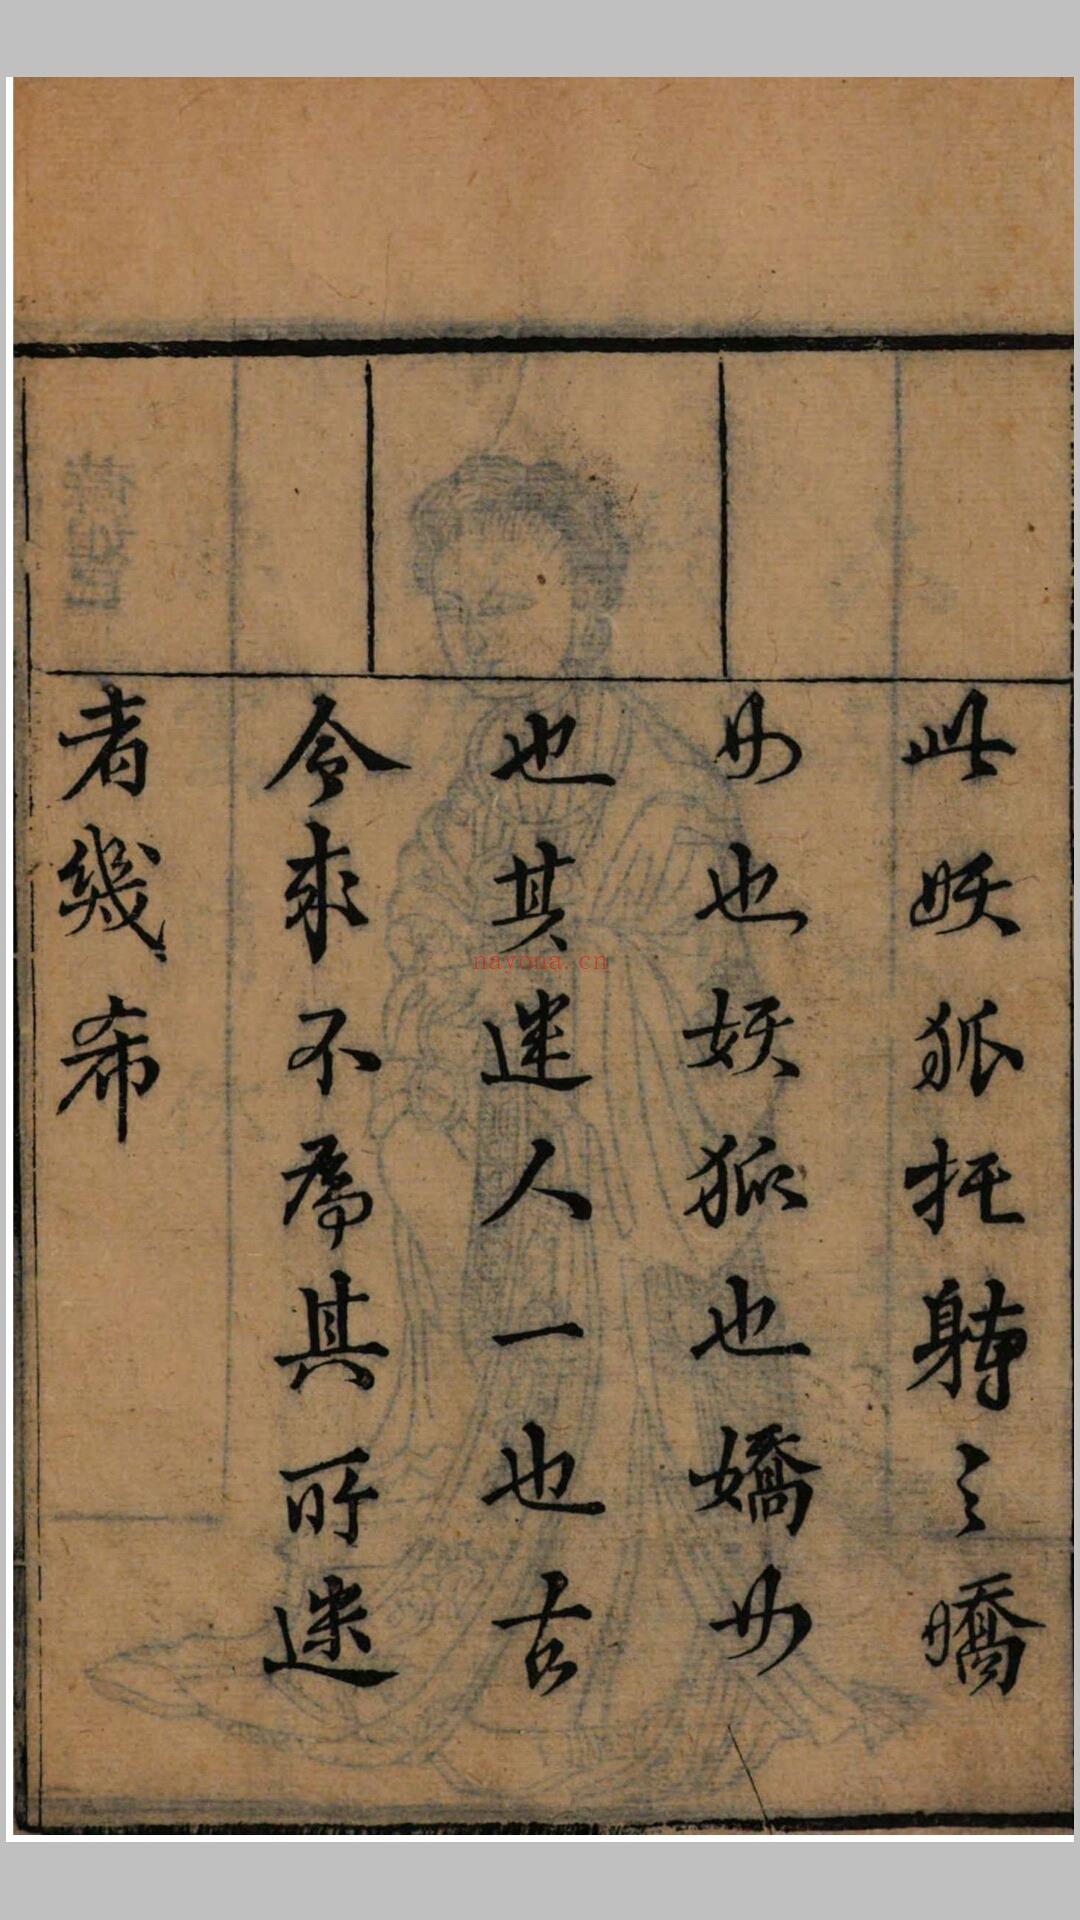 此妖狐托轉之嬌
女也妖狐也嬌女
也其迷人一也古
今來不為其所迷
者幾希
nayona.cn